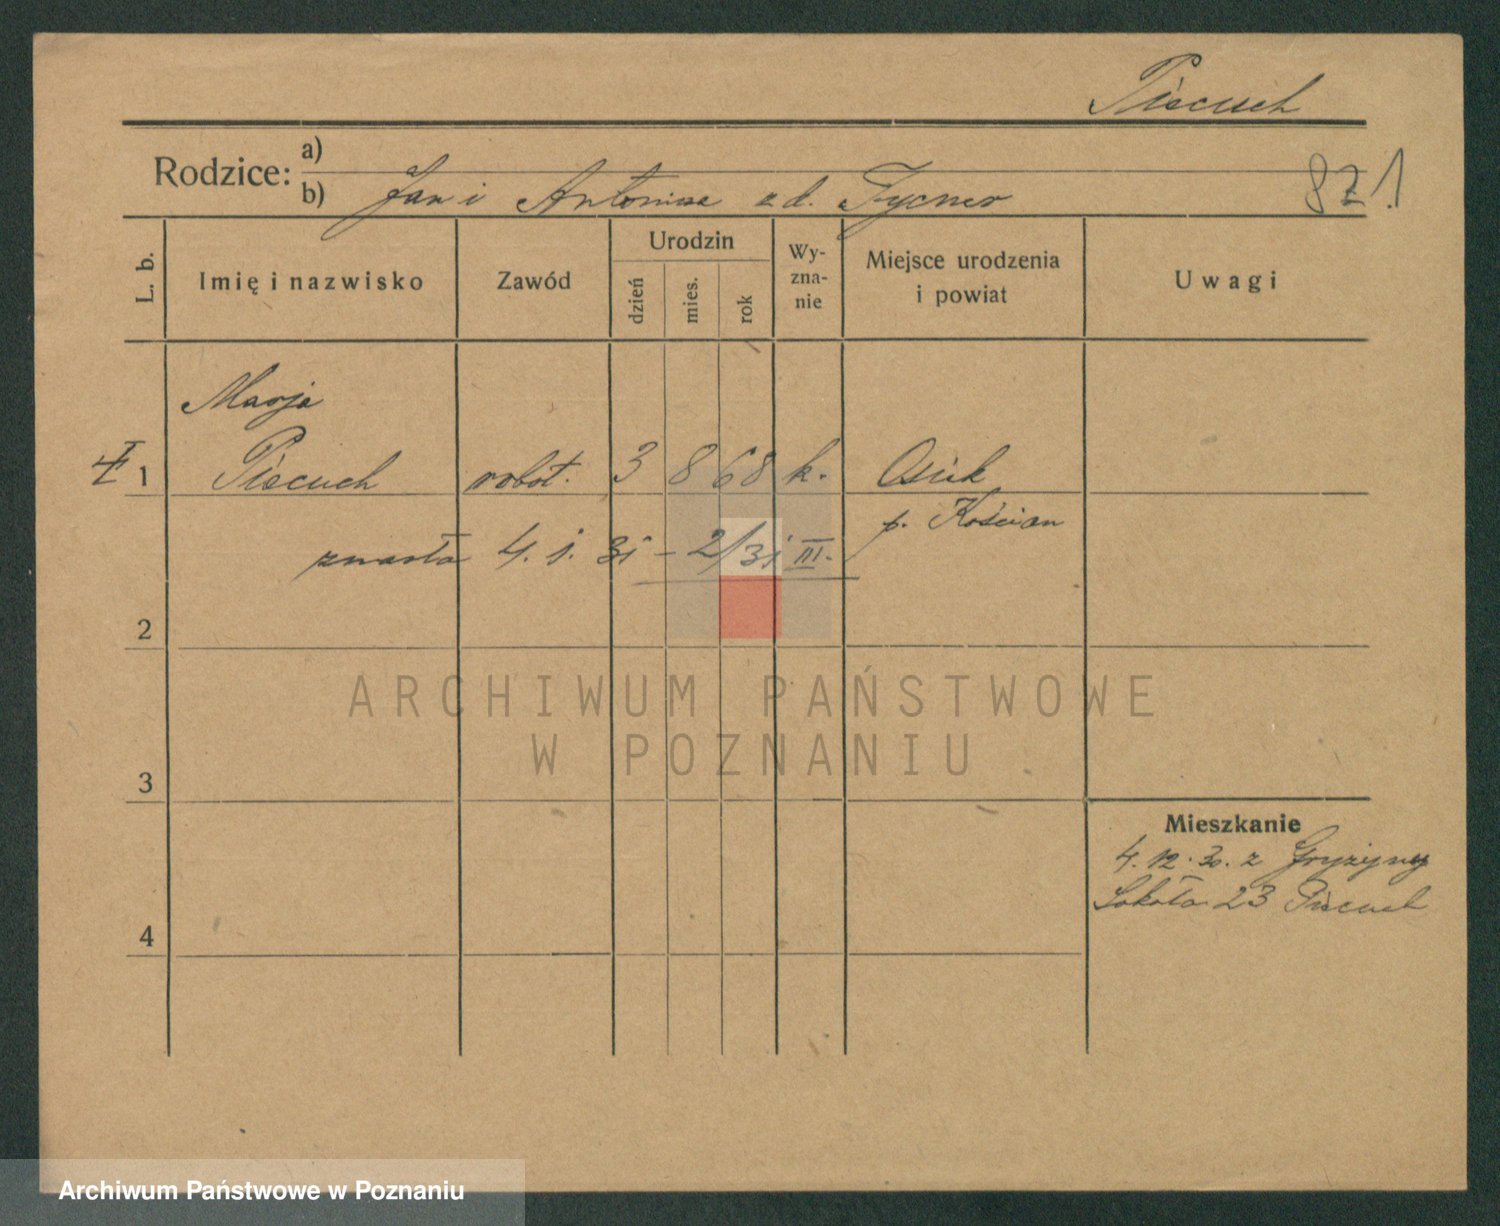 Piecuch
Rodzice: a)
b) Jan i Antonina z d. Tycner
871
L. b. Imię i nazwisko Zawód Urodzin dzień mies. rok Wy-zna-nie Miejsce urodzenia i powiat Uwagi
Marja
1 Piecuch robot. 3 8 68 k. Osiek
p. Kościan
zmarła 4. 1. 31 - 2/31 III.
2
3
4
Mieszkanie
4. 12. 30. z Gryżyny
Sokoła 23 Piecuch
ARCHIWUM PAŃSTWOWE
W POZNANIU
Archiwum Państwowe w Poznaniu